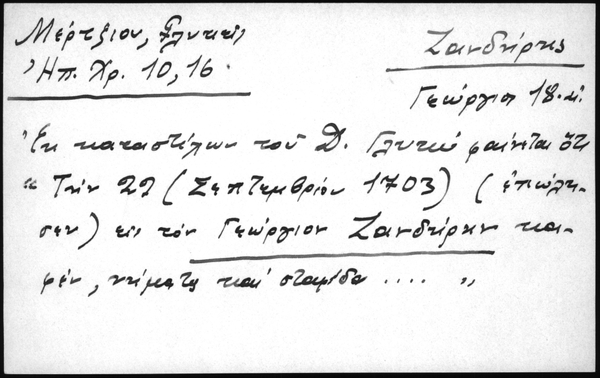 Μέρτζιου, Γλυκεῖς
Ἠπ. Χρ. 10, 16
Ζανδήρης
Γεώργιος 18. αἰ.
Ἐκ καταστίχων τοῦ Δ. Γλυκύ φαίνεται ὅτι
« Τήν 22 (Σεπτεμβρίου 1703) (ἐπώλη-
σεν) εἰς τόν Γεώργιον Ζανδήρην κα-
φέν, νήματα καί σταφίδα .... »